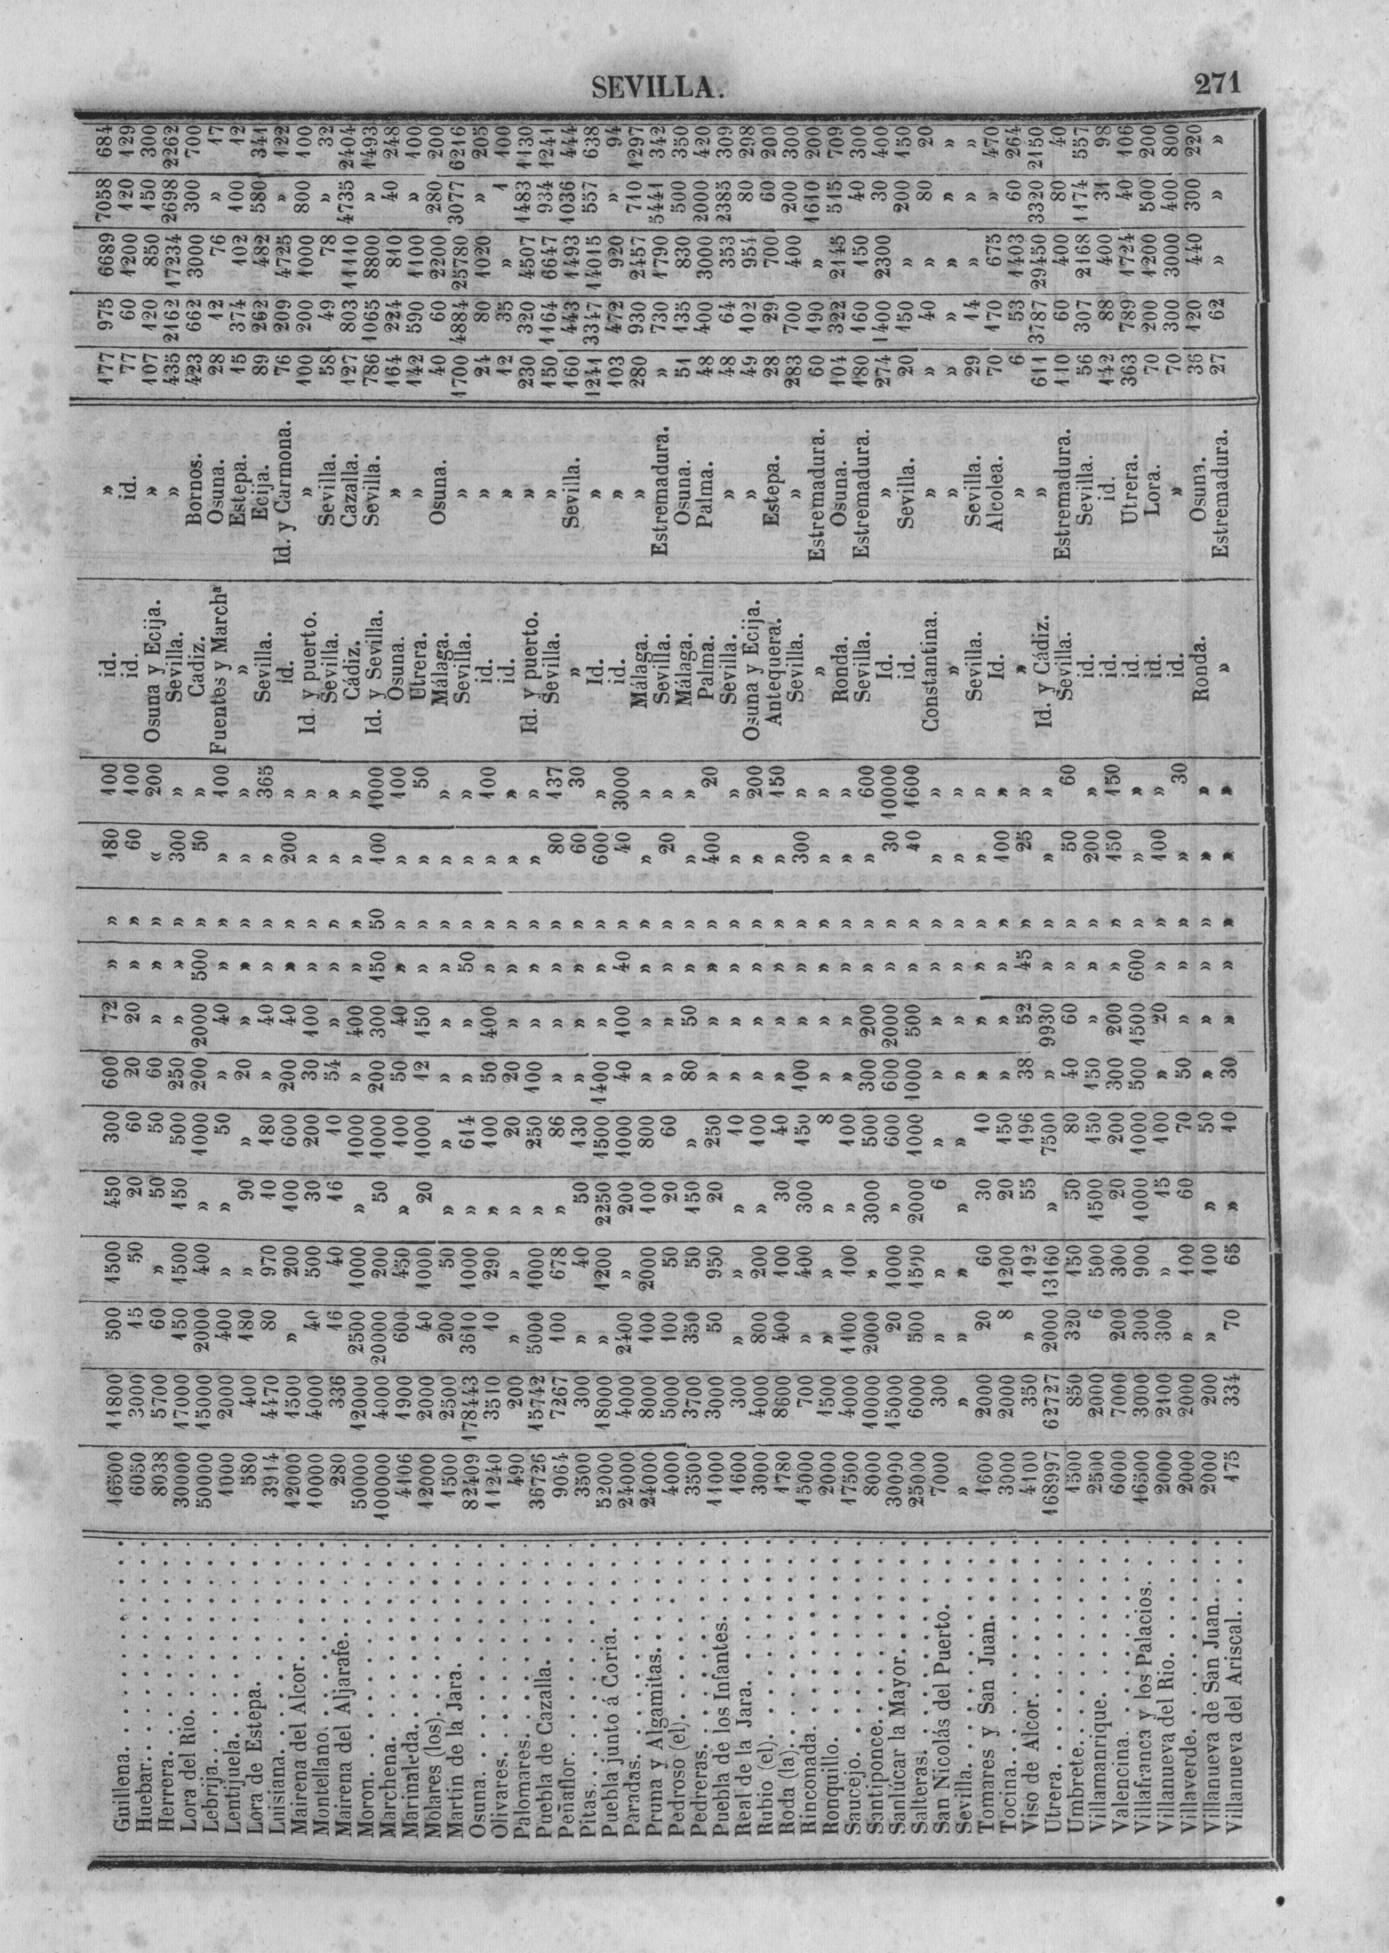 SEVILLA. 271
Guillena. 16500 11800 500 1500 450 300 600 72 » » 180 100 id. » 177 975 6689 7058 684
Huebar. 6050 3000 15 50 20 60 20 20 » » 60 100 id. id. 77 60 1200 120 129
Herrera. 8038 5700 60 » 50 50 60 » » » « 200 Osuna y Ecija. » 107 120 850 150 300
Lora del Rio. 30000 17000 150 1500 150 500 250 » » » 300 » Sevilla. » 435 2162 17234 2698 2262
Lebrija. 50000 15000 2000 400 » 1000 200 2000 500 » 50 » Cadiz. Bornos. 423 662 3000 300 700
Lentijuela. 1000 2000 400 » » 50 » 40 » » » 100 Fuentes y Marchª Osuna. 28 12 76 » 17
Lora de Estepa. 580 400 180 » 90 » 20 » » » » » » Estepa. 15 374 102 100 12
Luisiana. 3914 4470 80 970 10 180 » 40 » » » 365 Sevilla. Ecija. 89 262 482 580 341
Mairena del Alcor. 12000 1500 » 200 100 600 200 40 » » 200 » id. Id. y Carmona. 76 209 4725 » 122
Montellano. 10000 4000 40 500 30 200 30 100 » » » » Id. y puerto. » 100 200 1000 800 100
Mairena del Aljarafe. 280 336 16 40 16 10 54 » » » » » Sevilla. Sevilla. 58 49 78 » 32
Moron. 50000 12000 2500 1000 » 1000 » 400 » » » » Cádiz. Cazalla. 127 803 11110 4735 2404
Marchena. 100000 4000 20000 200 50 1000 200 300 150 50 100 1000 Id. y Sevilla. Sevilla. 786 1065 8800 » 1493
Marinaleda. 4106 1900 600 450 » 100 50 40 » » » 100 Osuna. » 164 224 810 40 248
Molares (los). 12000 2000 40 1000 20 1000 12 150 » » » 50 Utrera. » 142 590 1100 » 100
Martin de la Jara. 1500 2500 200 50 » » » » » » » » Málaga. Osuna. 40 60 2200 280 200
Osuna. 82409 178443 3610 1000 » 614 » » 50 » » » Sevilla. » 1700 4884 25780 3077 6216
Olivares. 11240 3510 10 290 » 100 50 400 » » » 100 id. » 24 80 1020 » 205
Palomares. 490 200 » » » 20 20 » » » » » id. » 12 35 » 1 100
Puebla de Cazalla. 36726 15742 5000 1000 » 250 100 » » » » » Id. y puerto. » 230 320 4507 1483 1130
Peñaflor. 9064 7267 100 678 » 86 » » » » 80 137 Sevilla. » 150 1164 6647 934 1241
Pitas. 3500 300 » 40 50 130 » » » » 60 30 » Sevilla. 160 443 1493 1036 444
Puebla junto á Coria. 52000 18000 » 1200 2250 1500 1400 » » » 600 » Id. » 1241 3347 14015 557 638
Paradas. 24000 4000 2400 » 200 1000 40 100 40 » 40 3000 id. » 103 472 920 » 94
Pruna y Algamitas. 24000 8000 100 2000 100 800 » » » » » » Málaga. » 280 930 2457 710 1297
Pedroso (el). 4000 5000 100 50 20 60 » » » » 20 » Sevilla. Estremadura. » 730 1790 5441 342
Pedreras. 3500 3700 350 50 150 » 80 50 » » » » Málaga. Osuna. 51 135 830 500 350
Puebla de los Infantes. 11000 3000 50 950 20 250 » » » » 400 20 Palma. Palma. 48 400 3000 2000 420
Real de la Jara. 1600 300 » » » 10 » » » » » » Sevilla. » 48 64 353 2385 309
Rubio (el). 3000 4000 800 200 » 100 » » » » » 200 Osuna y Ecija. » 49 102 954 80 298
Roda (la). 1780 8600 400 100 30 40 » » » » » 150 Antequera. Estepa. 28 29 700 60 200
Rinconada. 15000 700 » 400 300 150 100 » » » 300 » Sevilla. » 283 700 400 200 300
Ronquillo. 2000 1500 » » » 8 » » » » » » » Estremadura. 60 190 » 1610 200
Saucejo. 17500 4000 1100 100 » 100 » » » » » » Ronda. Osuna. 104 322 2145 515 709
Santiponce. 8000 10000 2000 » 3000 500 300 200 » » » 600 Sevilla. Estremadura. 180 160 150 40 300
Sanlúcar la Mayor. 30090 15000 20 1000 » 600 600 2000 » » 30 10000 Id. » 274 1400 2300 30 400
Salteras. 25000 6000 500 1500 2000 1000 1000 500 » » 40 1600 id. Sevilla. 20 150 » 200 150
San Nicolás del Puerto. 7000 300 » » 6 » » » » » » » Constantina. » » 40 » 80 20
Sevilla. » » » » » » » » » » » » » » » » » » »
Tomares y San Juan. 1600 2000 20 60 30 10 » » » » » » Sevilla. Sevilla. 29 14 » » »
Tocina. 3000 2000 8 1200 20 150 » » » » 100 » Id. Alcolea. 70 170 675 » 470
Viso de Alcor. 4100 350 » 192 55 196 38 52 45 » 25 » » » 6 53 1403 60 264
Utrera. 168997 62727 2000 13160 » 7500 » 9930 » » » » Id. y Cadiz. » 611 3787 29450 3320 2150
Umbrete. 1500 850 320 150 50 80 40 60 » » 50 60 Sevilla. Estremadura. 110 60 400 80 40
Villamanrique. 2500 2000 6 500 1500 150 150 » » » 200 » id. Sevilla. 56 307 2168 1174 557
Valencina. 6000 7000 200 300 20 200 300 200 » » 150 150 id. id. 142 88 400 31 98
Villafranca y los Palacios. 16500 3000 300 900 1000 1000 500 1500 600 » » » id. Utrera. 363 789 1724 40 106
Villanueva del Rio. 2000 2100 300 » 15 100 » 20 » » 100 » id. Lora. 70 200 1200 500 200
Villaverde. 2000 2000 » 100 60 70 50 » » » » 30 id. » 70 300 3000 400 800
Villanueva de San Juan. 2000 200 » 100 » 50 » » » » » » Ronda. Osuna. 36 120 440 300 220
Villanueva del Ariscal. 175 334 70 65 » 40 30 » » » » » » Estremadura. 27 62 » » »